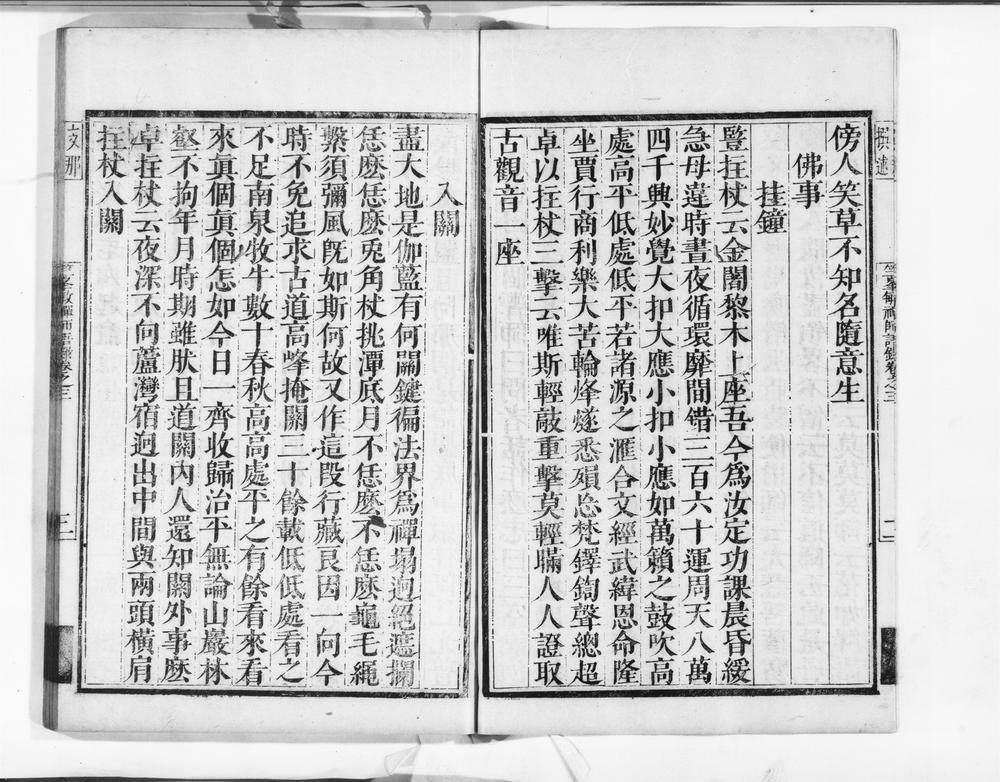 傍人笑草不知名隨意生
佛事
挂鐘
豎拄杖云金闍黎木上座吾今爲汝定功課晨昏緩
急母違時晝夜循環靡間错三百六十運周天八萬
四千興妙覺大扣大應小扣小應如萬籟之鼓吹高
處高平低處低平若諸源之滙合文經武緯恩命隆
坐賈行商利樂大苦輪烽燧悉殞㳟梵鐸鐫聲總超
卓以拄杖三擊云唯斯輕敲重擊莫輕瞞人人證取
古觀音一座
入關
盡大地是伽藍有何關鍵徧法界爲禪榻逈絕遮攔
恁麼恁麼兎角杖挑潭底月不恁麼不恁麼龜毛繩
繫須彌風旣如斯何故又作這段行藏良因一向今
時不免追求古道高峰掩關三十餘載低低處看之
不足南泉牧牛數十春秋高高處平之有餘看來看
來眞個眞個怎如今日一齊收歸治平無論山巖林
壑不拘年月時期雖肰且道關內人還知關外事麼
卓拄杖云夜深不向蘆灣宿逈出中間與兩頭橫肩
拄杖入關